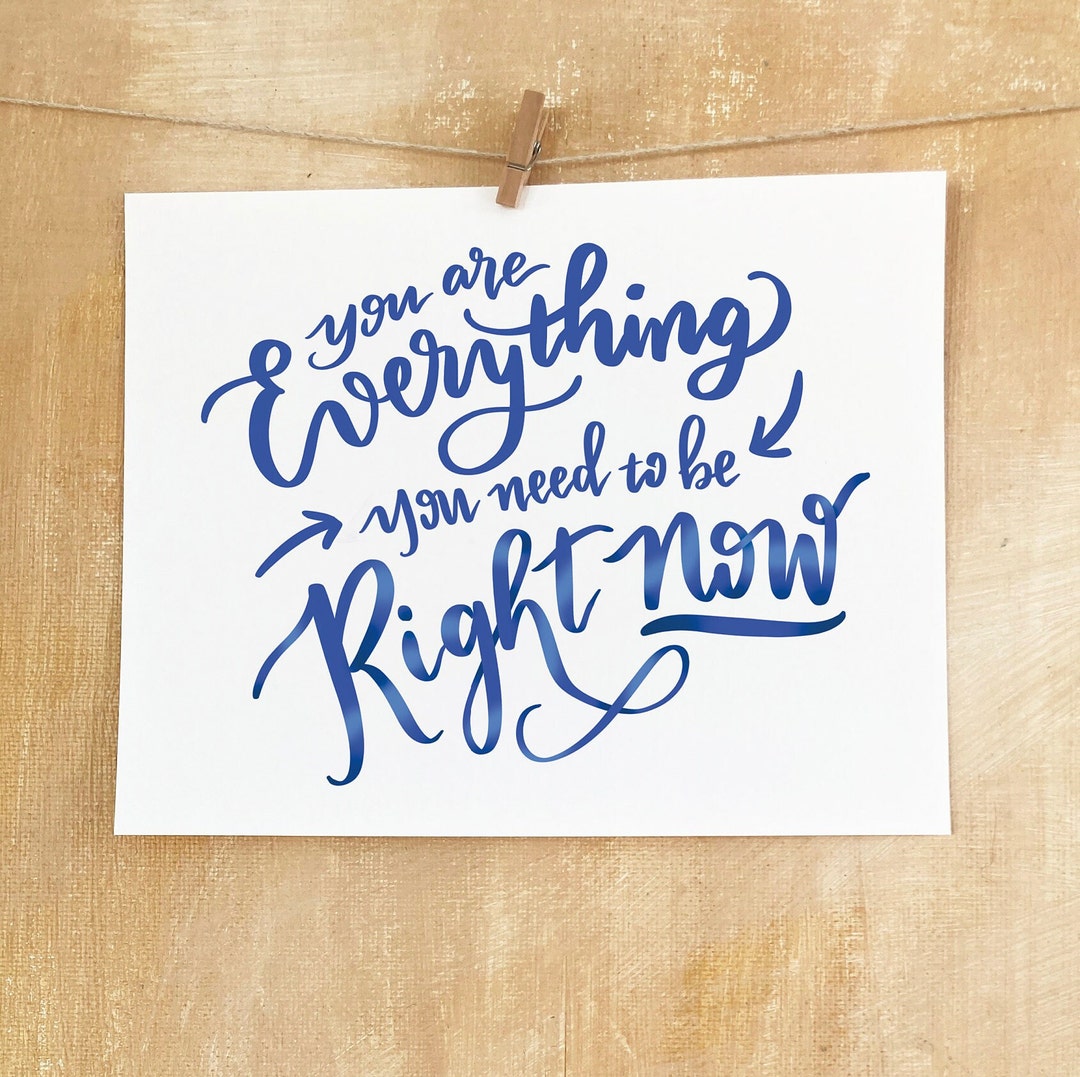 you are
Everything
you need to be
Right now